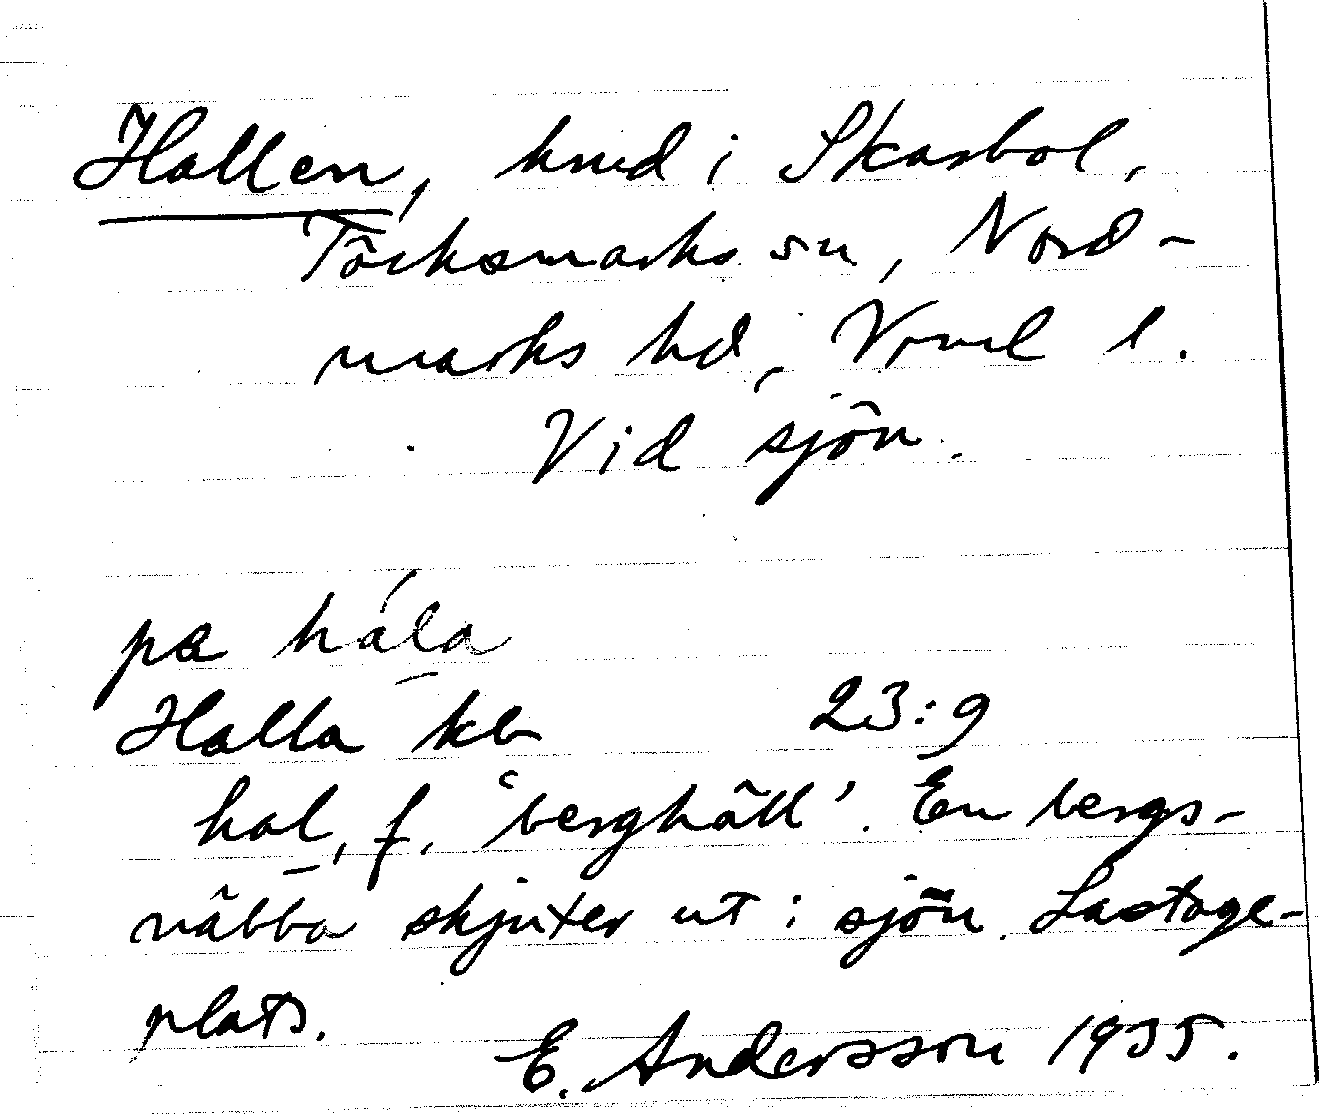 Hallen, hmd i Skarbol,
Töcksmarks sn, Nord-
marks hd, Vrml l.
Vid sjön.
pa hála
Halla kb 23:9
hal, f. 'berghäll'. En bergs-
näbba skjuter ut i sjön. Lastage-
plats.
E. Andersson 1935.